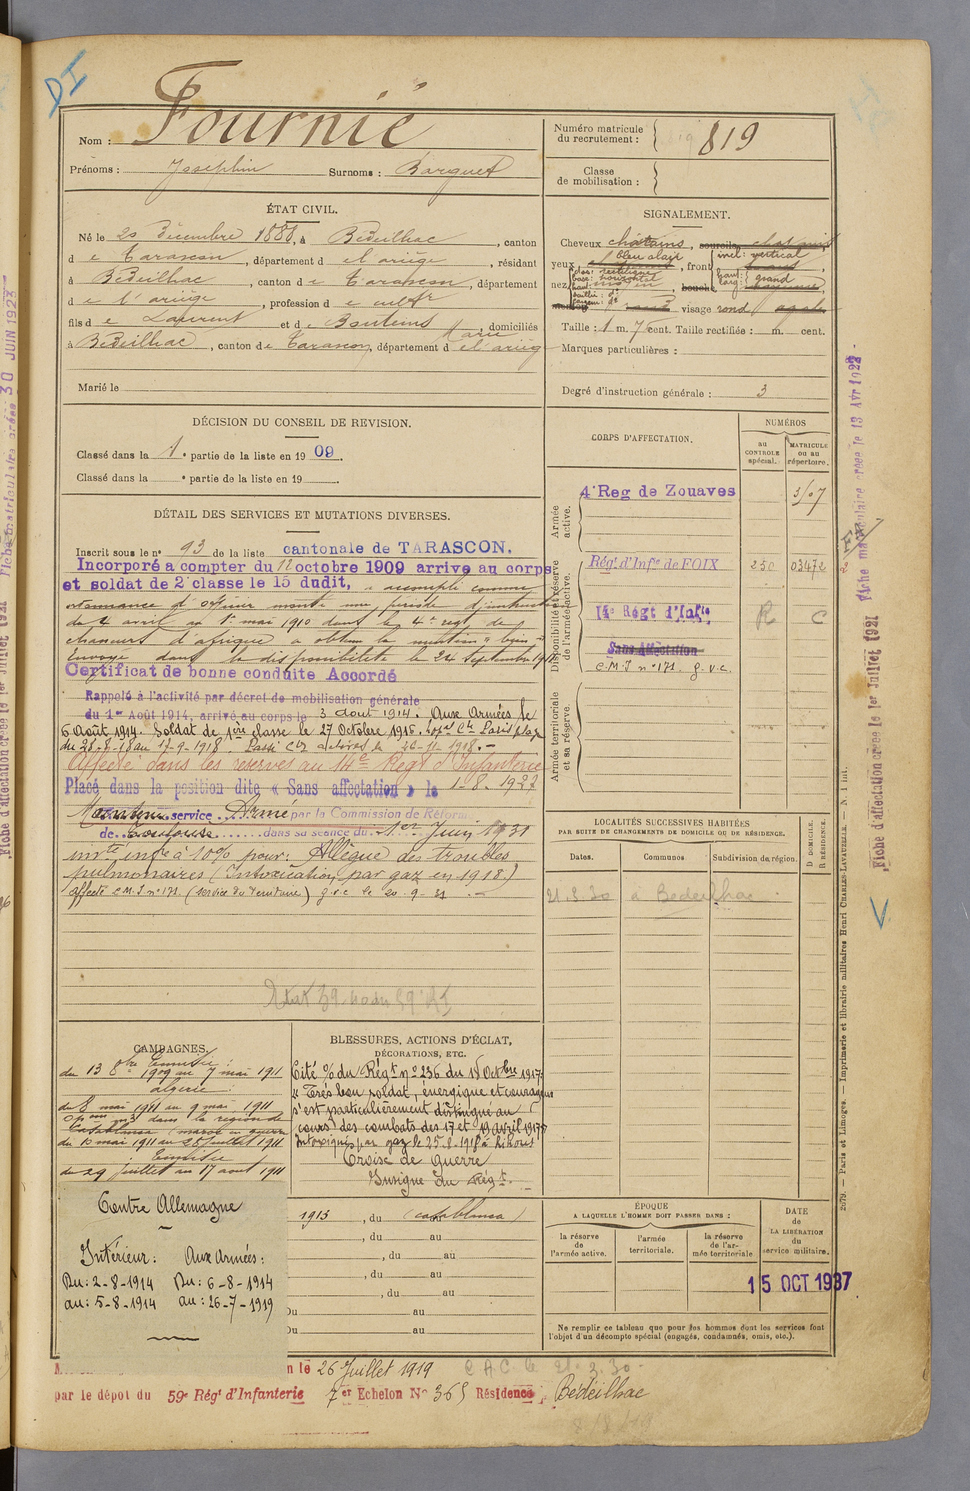 DI
Nom : Fournié
Prénoms : Josephin Surnoms : Barguet
Numéro matricule du recrutement : 819
Classe de mobilisation :
ÉTAT CIVIL.
Né le 20 Décembre 1888, à Bédeilhac, canton
d e Tarascon, département d el'ariège, résidant
à Bédeilhac, canton d e Tarascon, département
d e l'ariège, profession d e cultr
fils d e Laurent et d e Bonteins Marie, domiciliés
à Bédeilhac, canton de Tarascon, département d el'arièg
Marié le
SIGNALEMENT.
Cheveux châtains, sourcils chatains
yeux bleu clair, front incl: vertical
haut: larg: grand
nez dos: rectiligne base: horizontal haut: moyen, bouche
visage rond
Taille : 1 m. 7 cent. Taille rectifiée : m. cent.
Marques particulières :
Degré d'instruction générale : 3
DÉCISION DU CONSEIL DE REVISION.
Classé dans la 1e partie de la liste en 1909.
Classé dans la e partie de la liste en 19
DÉTAIL DES SERVICES ET MUTATIONS DIVERSES.
Inscrit sous le no 93 de la liste cantonale de TARASCON.
Incorporé a compter du 12 octobre 1909 arrivé au corps
et soldat de 2e classe le 15 dudit, a accompli comme
ordonnance d'officier monté une période d'instruction
du 4 avril au 1er mai 1910 dans le 4e regt de
chasseurs d'affrique a obtenu la mention "bien"
Envoyé dans la disponibilité le 24 Septembre 1911
Certificat de bonne conduite Accordé
Rappelé à l'activité par décret de mobilisation générale
du 1er Août 1914, arrivé au corps le 3 aout 1914. Aux Armées le
6 Août 1914. Soldat de 1ère classe le 27 Octobre 1916.
du 28-8-18 au 17-9-1918. Passé Cie le 26-11-1918.-
Affecté dans les réserves au 14e Régt d'Infanterie
Placé dans la position dite « Sans affectation » le 1-8-1927
Maintenu service Armé par la Commission de Réforme
de Toulouse dans sa séance du 1er Juin 1931
invté infre à 10% pour: Allègue des troubles
pulmonaires (Intoxication par gaz en 1918.)
affecté C.M.I n° 171 (service du Territoire) g.v.c le 20-9-31 .-
CORPS D'AFFECTATION.
NUMÉROS
au CONTROLE spécial.
MATRICULE ou au répertoire.
Armée active.
4e Reg de Zouaves
Disponibilité et réserve de l'armée active.
Régt d'Infie de FOIX 250 03472
14e Régt d'Infie R C
Sans Affectation
C.M.I n° 171 g.v.c.
Armée territoriale et sa réserve.
LOCALITÉS SUCCESSIVES HABITÉES
PAR SUITE DE CHANGEMENTS DE DOMICILE OU DE RÉSIDENCE.
Dates. Communes. Subdivision de région. D DOMICILE. R RÉSIDENCE.
21.3.30 à Bedeilhac
CAMPAGNES.
Tunisie :
du 13 8bre 1909 au 7 mai 1911
algérie :
du 8 mai 1911 au 9 mai 1911
dans la region de
Casablanca (maroc en guerre
du 10 mai 1911 au 28 Juillet 1911
Tunisie
du 29 Juillet au 17 aout 1911
Centre Allemagne
Intérieur : Aux Armées :
Du: 2-8-1914 Du: 6-8-1914
au: 5-8-1914 au: 26-7-1919
BLESSURES, ACTIONS D'ÉCLAT,
DÉCORATIONS, ETC.
Cité O/ du Régt n° 236 du 18 Octbre 1917:
"Très bon soldat, énergique et courageux
s'est particulièrement distingué au
cours des combats des 17 et 19 avril 1917"
Intoxiqué par gaz le 25-8-1918 à Lihons
Croix de Guerre
Insigne du Régt.
1913, du (casablanca)
, du au
, du au
, du au
, du au
Du au
Du au
ÉPOQUE
A LAQUELLE L'HOMME DOIT PASSER DANS :
la réserve de l'armée active.
l'armée territoriale.
la réserve de l'armée territoriale
DATE de LA LIBÉRATION du service militaire.
15 OCT 1937
Ne remplir ce tableau que pour les hommes dont les services font
l'objet d'un décompte spécial (engagés, condamnés, omis, etc.).
n le 26 Juillet 1919
par le dépôt du 59e Régt d'Infanterie 7er Echelon No 365 Résidence, Bédeilhac
2579. — Paris et Limoges. — Imprimerie et librairie militaires Henri CHARLES-LAVAUZELLE. — N. 1 int.
Fiche d'affectation créée le 1er Juillet 1921
Fiche matriculaire créée le 13 Avr 1922
Fiche d'affectation créée le 1er Juillet 1921
Fiche matriculaire créée 30 JUIN 1923